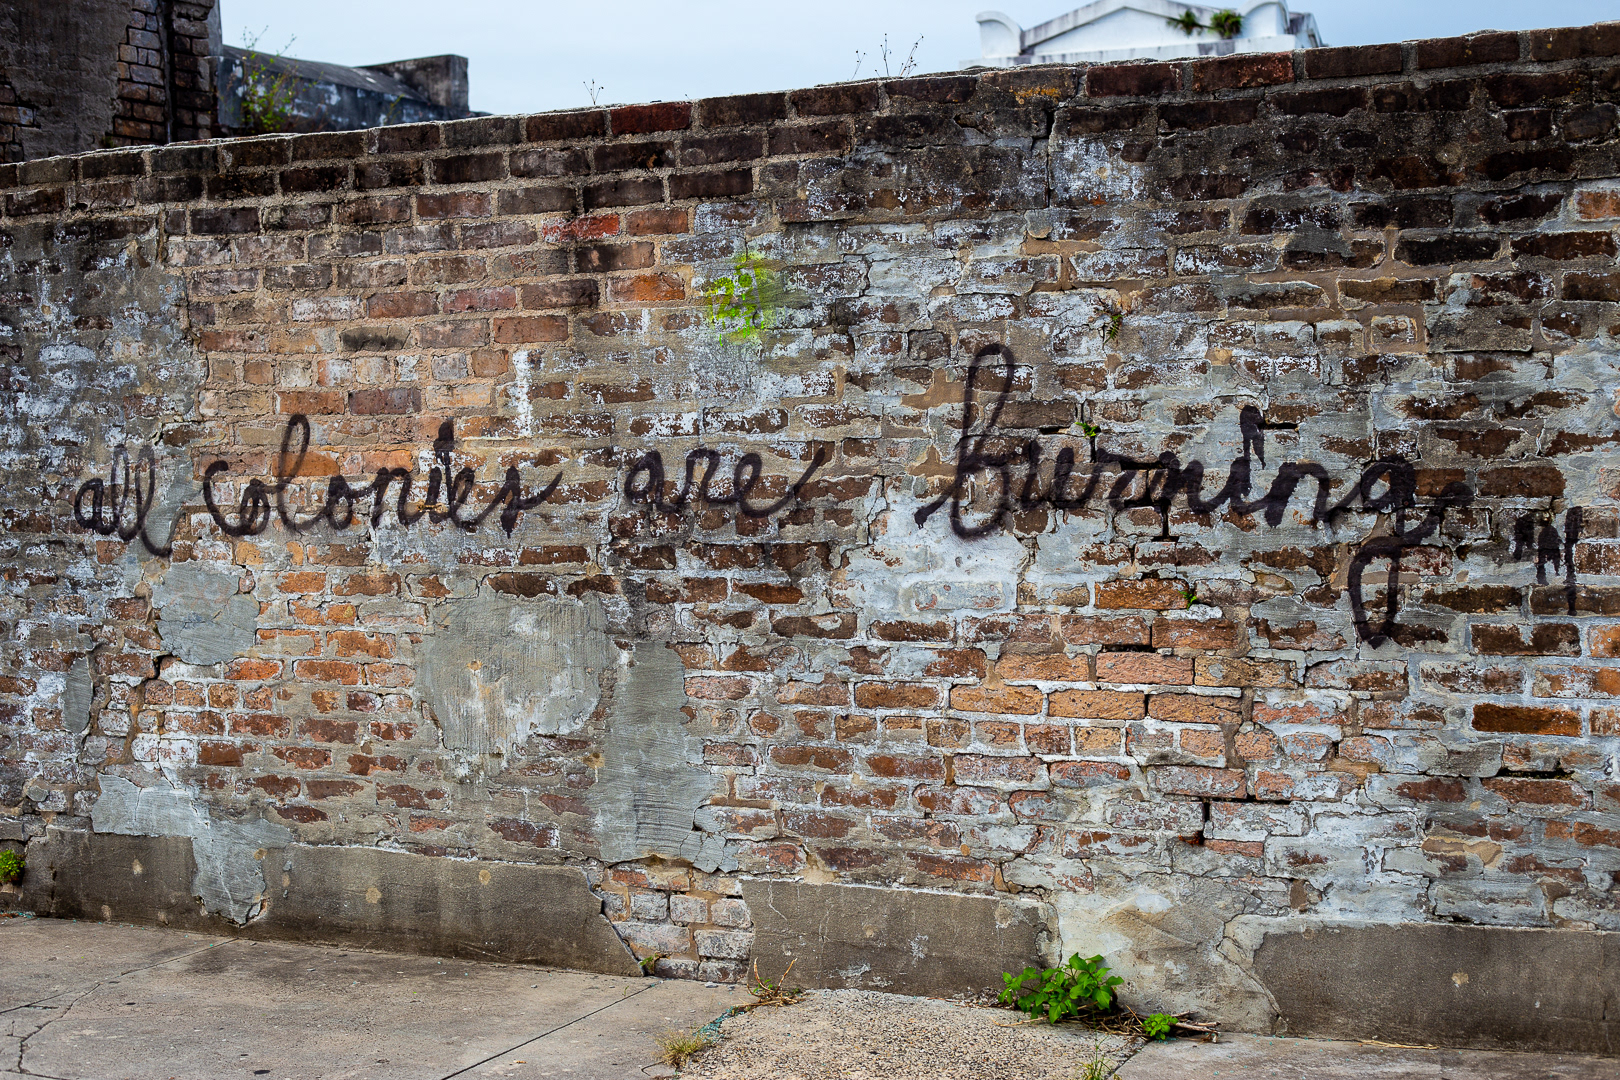 all colonies are burning